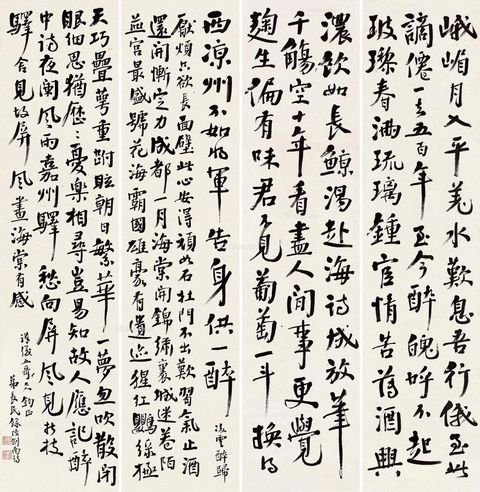 峨嵋月入平羌水歎息吾行俄至此
謫僊一去五百年至今醉魄呼不起
玻瓈春滿琉璃鍾宦情苦薄酒興
濃飲如長鯨渴赴海詩成放筆
千觴空十年看盡人間事更覺
麴生偏有味君不見葡萄一斗換得
西涼州不如將軍告身供一醉
凌雲醉歸
厭煩只欲長面壁此心安得頑如石杜門不出歎習氣止酒
還開慚定力成都二月海棠開錦繡裹城迷巷陌
燕宮最盛號花海霸國雄豪有遺跡猩紅鸚綠極
天巧疊萼重跗眩朝日繁華一夢忽吹散閉
眼細思猶歷歷憂樂相尋豈易知故人應記醉
中詩夜闌風雨嘉州驛愁向屏風見折枝
驛舍見故屏風畫海棠有感
鈞正
弟長民錄陸劍南詩